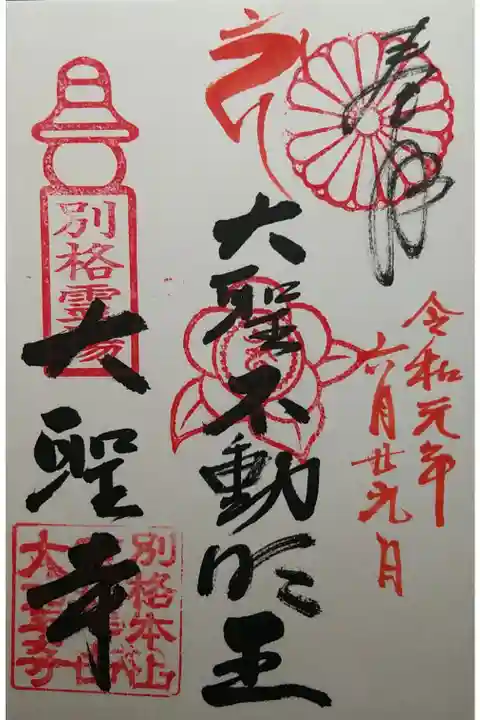 奉拝
令和元年
六月廿九日
大聖不動明王
別格霊場
大聖寺
別格本山
大聖寺